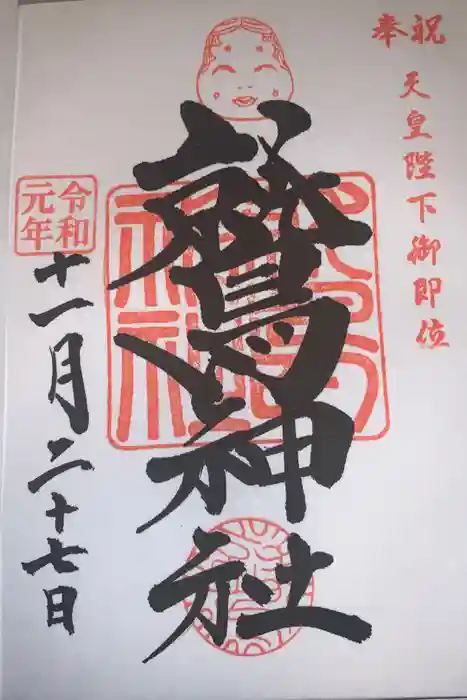 奉祝
天皇陛下御即位
鷲神社
令和
元年
十一月二十七日